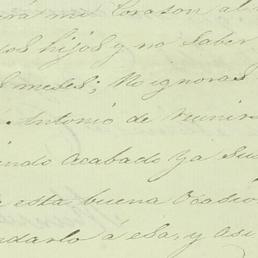 erá mi Corason al
os hijos y no saber
s meses; No ignoras
Antonio de
endo acabado ya sus
esta buena ocasio
ndarlo á esa, y asi